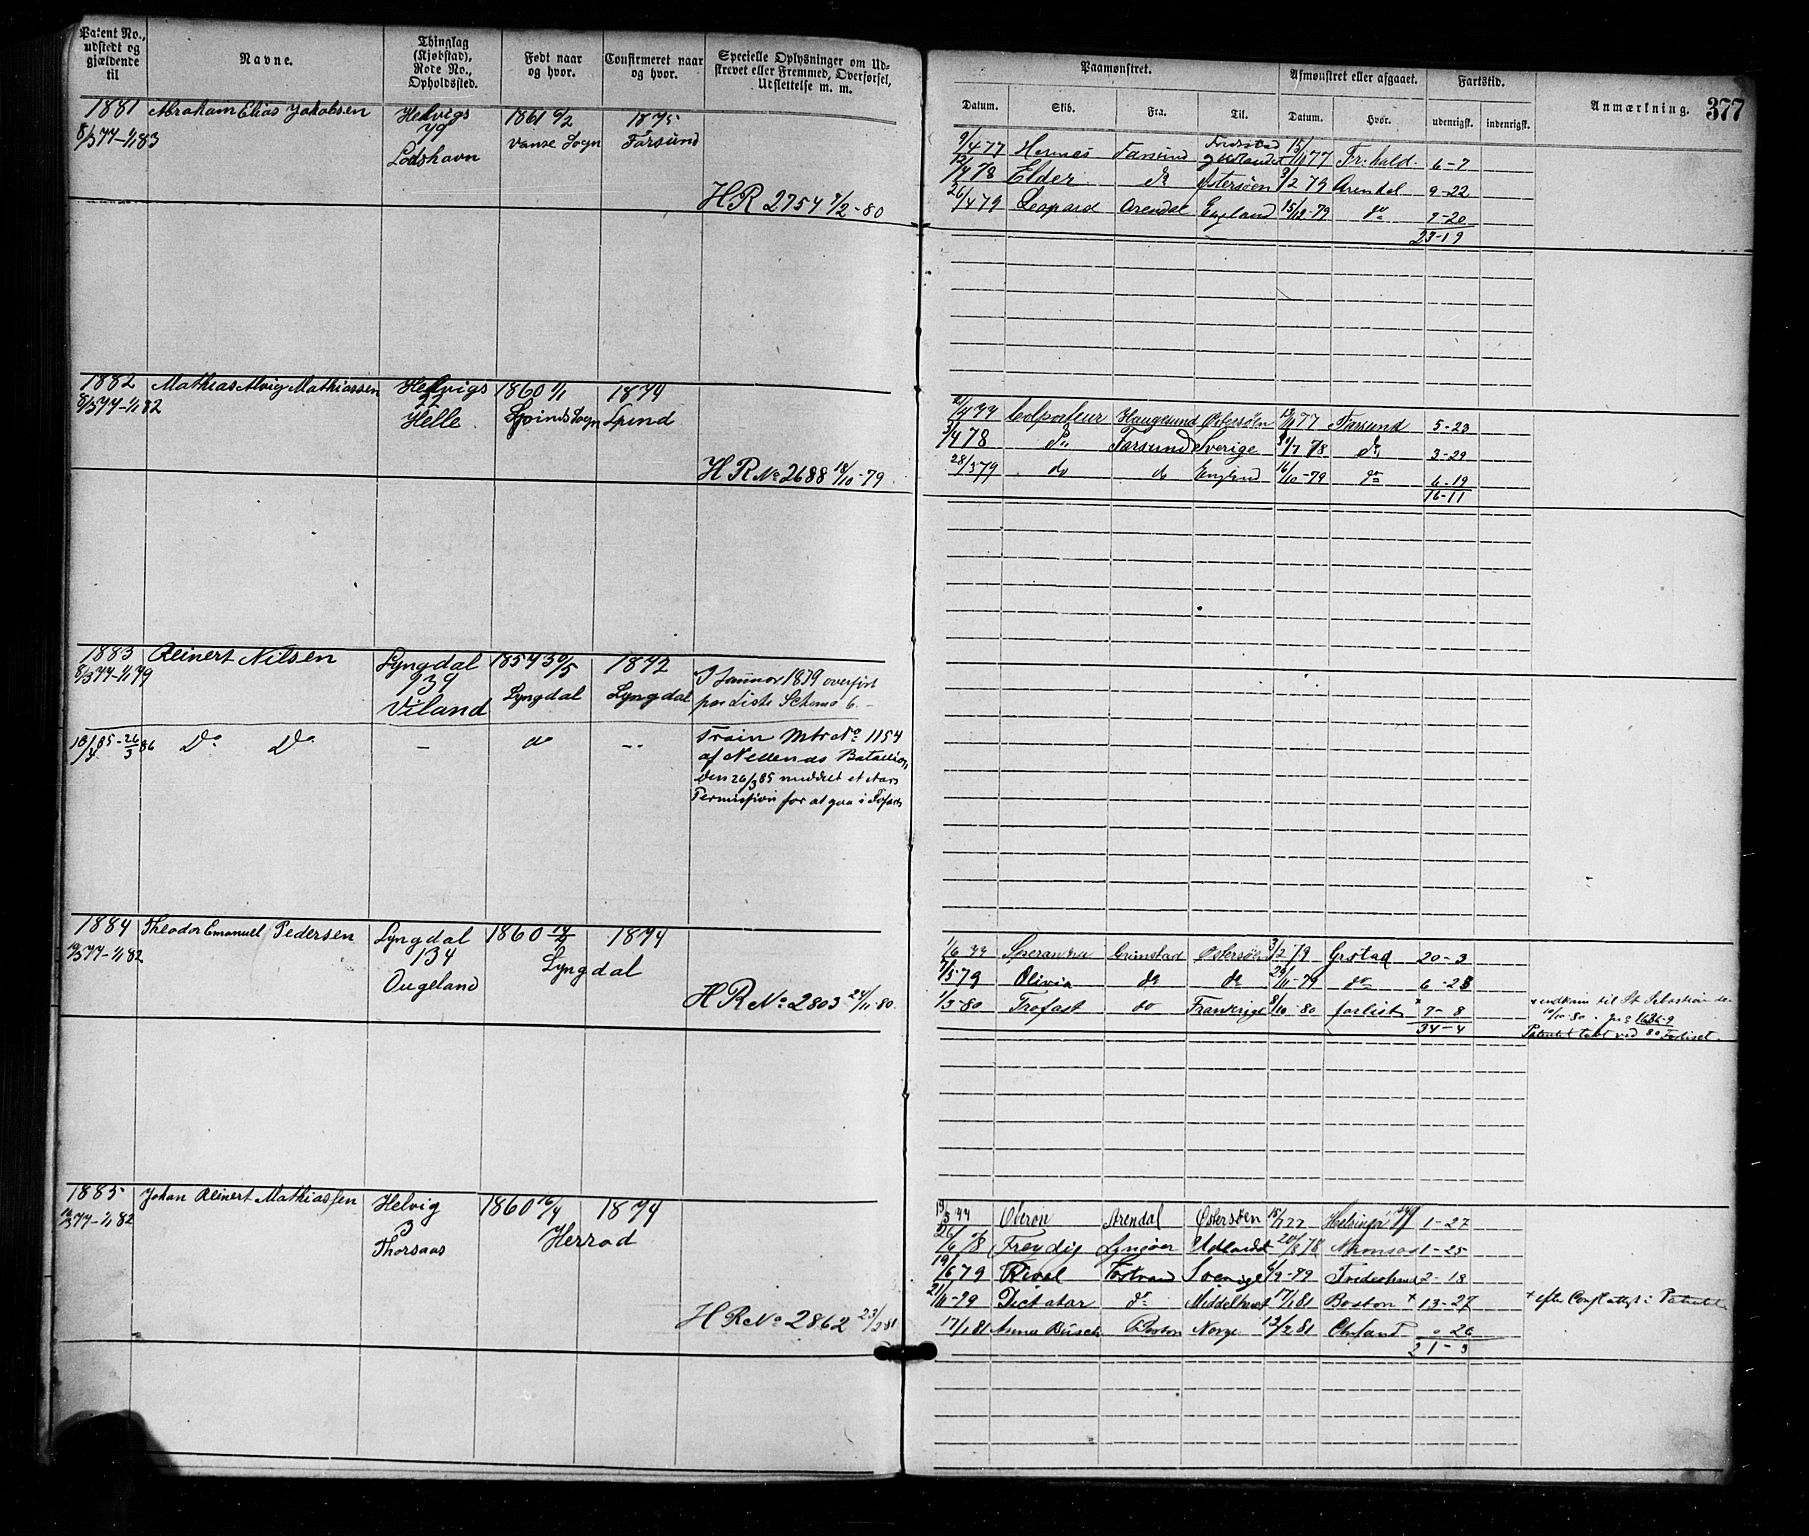 Patent No., udstedt og gjældende til
Navne.
Thinglag (Kjøbstad), Rode No., Opholdssted.
Født naar og hvor.
Confirmeret naar og hvor.
Specielle Oplysninger om Udskrevet eller Fremmed, Overførsel, Udslettelse m. m.
Paamønstret.
Afmønstret eller afgaaet.
Fartstid.
Anmærkning.
377
Datum.
Skib.
Fra.
Til.
Datum.
Hvor.
udenrigsk.
indenrigsk.
1881 Abraham Elias Jakobsen
8/3 77-1/1 83
Helvigs
79
Lodshavn
1861 6/2
Vanse Sogn
1875
Farsund
HR 2754 4/2-80
9/4 77 Hermes Farsund Fredrstad og Udlandet 15/11 77 Fr:hald. 6-7
12/4 78 Elder do Østersøen 3/2 79 Arendal 9-22
26/4 79 Leopard Arendal England 15/12-79 do 7-20
23-19
1882 Mathias Alvig Mathiassen
8/3 77-1/1 82
Helvigs
Helle
1860 1/1
Spinds Sogn
1874
Spind
HR No 2688 18/10-79
Colporteur Haugesund Østersøen 77 Farsund 5-23
3/4 78 do Farsund Sverige 31/7 78 do 3-29
28/3 79 do do England 16/10-79 do 6-19
16-11
1883 Reinert Nilsen
8/3 77-1/1 79
Lyngdal
939
Viland
1854 30/5
Lyngdal
1872
Lyngdal
I Januar 1879 overført
per Liste Schema 6.
18/4 85-26/3 86 Do Do - do --
Train Mtr No 1154
af Nedenæs Batailion,
den 26/3 85 meddelt et aars
Permission for at gaa i
1884 Theodor Emanuel Pedersen
10/3 77-1/1 82
Lyngdal
134
Augeland
1860
Lyngdal
1874
HR No 2803 24/11-80.
1/6 77 Speranza Grimstad Østersøen 3/2 79 Grstad 20-3
7/5-79 Olivia do do 29/11-79 do 6-28
1/3-80 Trofast do Frankrige 8/10-80 forlist x 7-8
34-4
x indkom til St Sebastian den
10/10-80
Patentet tabt ved Forliset.
1885 Johan Reinert Mathiassen
14/3 77-1/1 82
Helvig
3
Thorsaas
1860 16/4
Herrad
1874
HR No 2862 23/2 81
19/5 77 Oberon Arendal Østersøen 15/7 77 Helsingør 1-27
26/6 78 Freydig Lyngør Udlandet 20/8 78 1-25
19/6 79 Rival Tostrand Sverige 6/9-79 2-18
21/11-79 Dictator do Middelhavet 17/1 81 Boston + 13-27
+ efter Consl attest i Patentet
17/1 81 Anna Busch Boston Norge 13/2 81 " 26
21-3